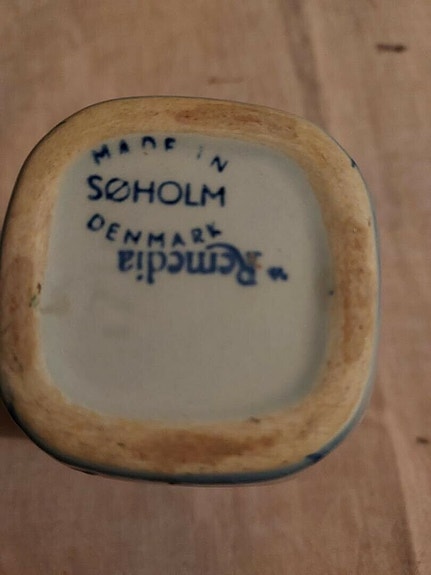 MADE IN
SØHOLM
DENMARK
Remedia